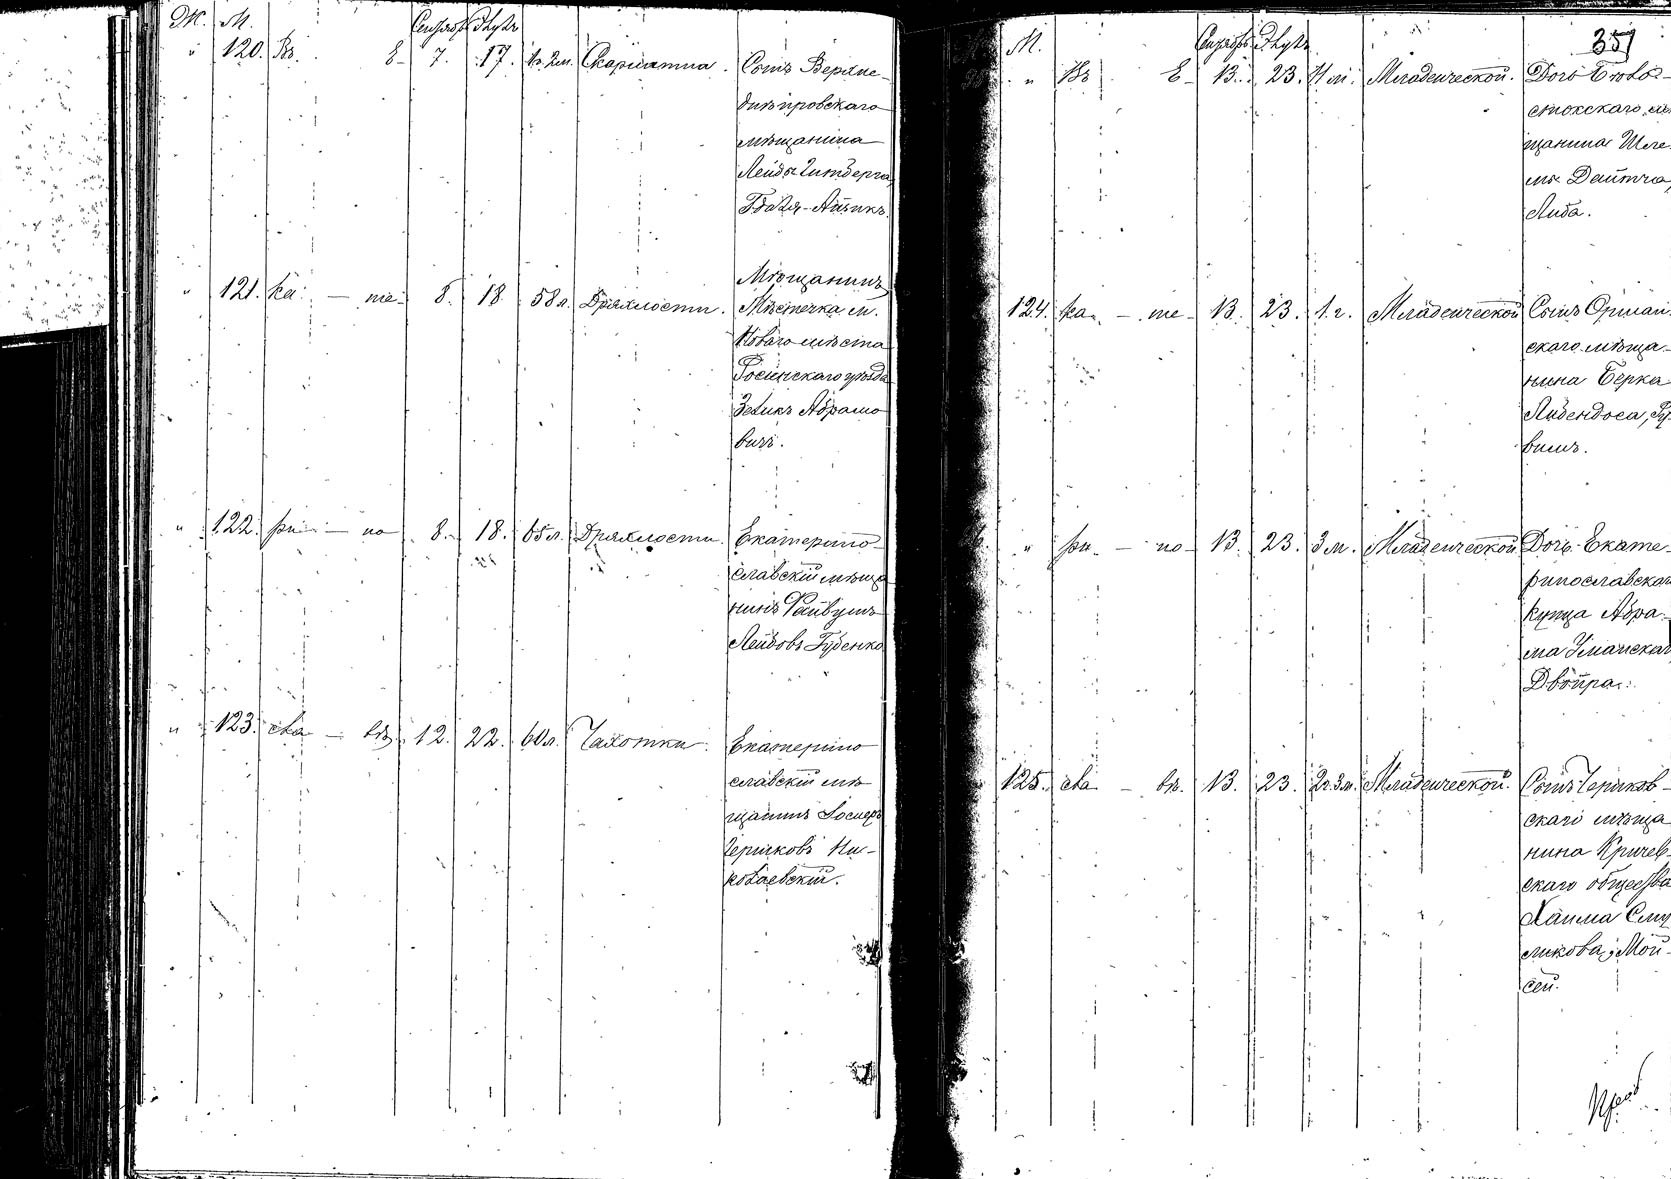 Ж. М. Сентябр Элулъ
" 120. Въ Е- 7. 17. 1г. 2м. Скарлатина. Сынъ Верхне-
днѣпровскаго
мѣщанина
Айзикъ.
" 121. ка - те- 8. 18 58 л. Дряхлости. Мѣщанинъ
Мѣстечка м.
Новаго мѣста
Росіенскаго уѣзда
Зеликъ Абрамо
вичъ.
" 122. ри - но 8. 18. 65 л. Дряхлости. Екатерино-
славскій мѣща
нинъ Файвушъ
Лейбовъ Губенко
" 123. сла - въ 12. 22. 60 л. Чахотки. Екатерино
славскій мѣ-
щанинъ
Ни-
колаевскій.
М. Сентябрь Элулъ 351
" Въ Е- 13. 23. 11 м. Младенческой. Дочь Бѣло-
стокскаго мѣ
щанина Шле-
мы Дайтча,
Либа.
124. ка - те- 13. 23. 1 г. Младенческой Сынъ Оршан-
скаго мѣща-
нина Берка
Ру-
вимъ.
" ри - но- 13. 23. 3 м. Младенческой Дочь Екате-
ринославскаго
купца Абра-
ма Уманскаго
Двойра.
125. сла - въ. 13. 23. 2г. 3м. Младенческой. Сынъ Чериков-
скаго мѣща
нина Кричев-
скаго общества
Хаима Сму
ликова, Мой-
сей.